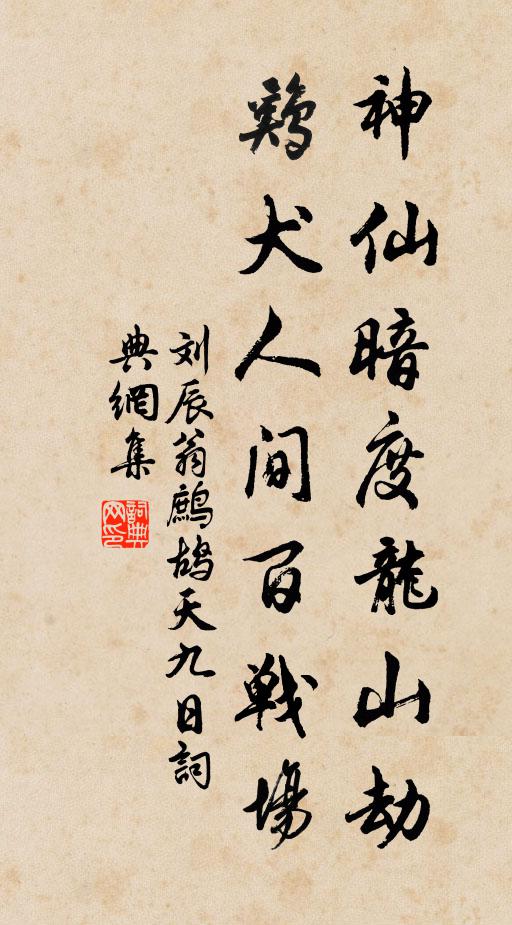 神仙暗度龍山劫
鷄犬人間百戰場
刘辰翁鷓鴣天九日詞
典網集
詞典網印